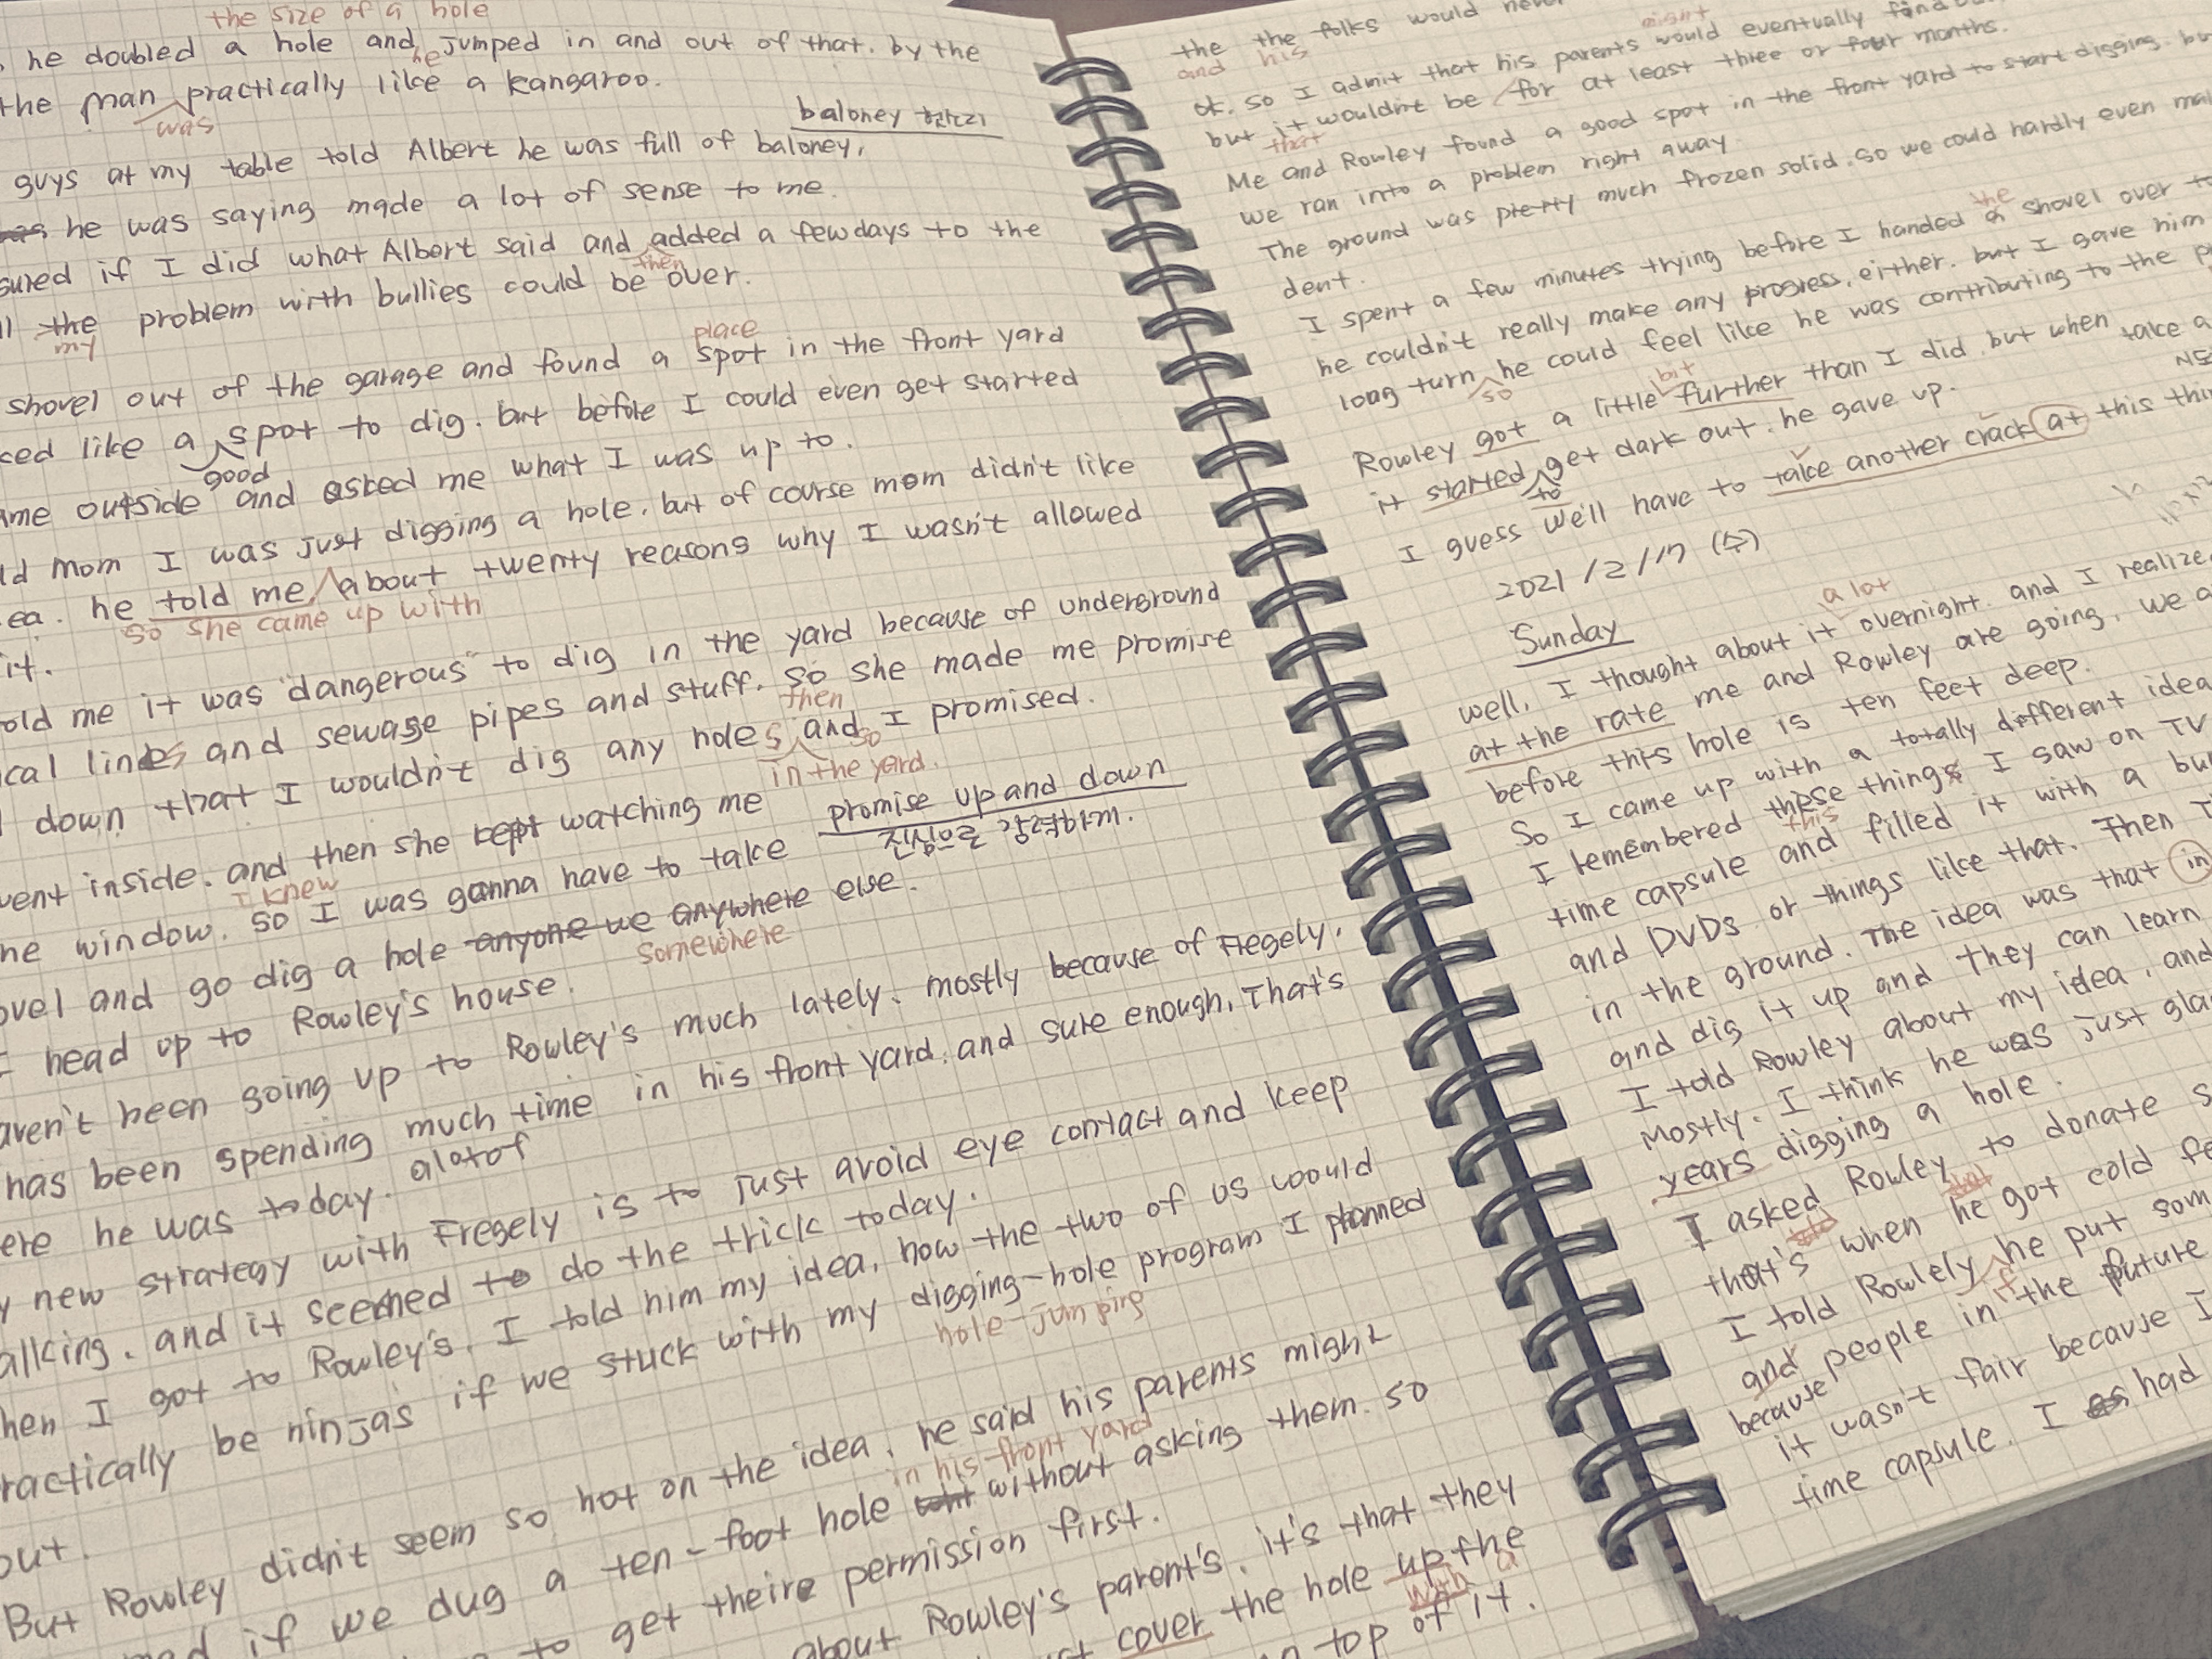 the size of a hole
he doubled a hole and jumped in and out of that. by the
he
the man practically like a kangaroo.
was
baloney 헛소리
guys at my table told Albert he was full of baloney,
he was saying made a lot of sense to me.
sured if I did what Albert said and added a few days to the
then
the problem with bullies could be over.
my
place
shovel out of the garage and found a spot in the front yard
ced like a spot to dig. but before I could even get started
good
ame outside and asked me what I was up to.
ld mom I was just digging a hole. but of course mom didn't like
ea. he told me about twenty reasons why I wasn't allowed
so she came up with
it.
old me it was "dangerous" to dig in the yard because of underground
ical lines and sewage pipes and stuff. so she made me promise
then
down that I wouldn't dig any holes and I promised.
so
in the yard.
promise up and down
진심으로 약속하다.
vent inside. and then she kept watching me
I knew
he window. so I was gonna have to take
ovel and go dig a hole anyone we anywhere else.
somewhere
I head up to Rowley's house.
aven't been going up to Rowley's much lately. mostly because of Fregely.
has been spending much time in his front yard. and sure enough, That's
a lot of
ere he was today.
y new strategy with Fregely is to just avoid eye contact and keep
alking. and it seemed to do the trick today.
hen I got to Rowley's. I told him my idea, how the two of us would
ractically be ninjas if we stuck with my digging-hole program I planned
hole-jumping
out.
But Rowley didn't seem so hot on the idea. he said his parents might
in his front yard
if we dug a ten-foot hole without asking them. so
to get theire permission first.
about Rowley's parent's. it's that they
cover the hole up the
with a
top of it.
the the folks would never
and his
might
ok. so I admit that his parents would eventually find
but it wouldn't be for at least three or four months.
that
Me and Rowley found a good spot in the front yard to start digging. but
we ran into a problem right away.
The ground was pretty much frozen solid. so we could hardly even mak
dent.
the
I spent a few minutes trying before I handed a shovel over to
he couldn't really make any progress, either. but I gave him
long turn he could feel like he was contributing to the p
so
bit
Rowley got a little further than I did. but when
it started get dark out. he gave up.
to
take a
I guess we'll have to take another crack at this thin
2021/2/17 (수)
Sunday
a lot
well, I thought about it overnight. and I realize
at the rate me and Rowley are going, we a
before this hole is ten feet deep.
So I came up with a totally different idea
I remembered these things I saw on TV
this
time capsule and filled it with a bu
and DVDs or things like that. Then T
in the ground. The idea was that in
and dig it up and they can learn
I told Rowley about my idea, and
Mostly. I think he was just gla
years digging a hole.
I asked Rowley to donate s
that's when he got cold fe
I told Rowlely he put som
if
and people in the future
because
it wasn't fair because I
time capsule. I had